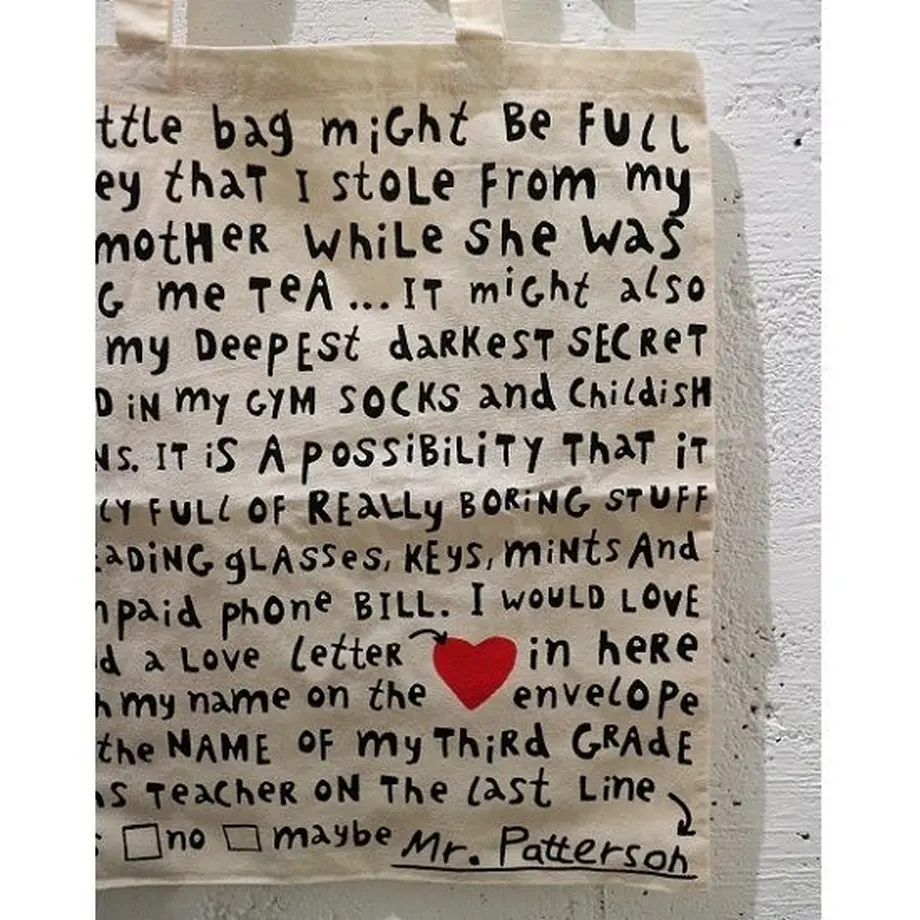 ttle bag might Be FULL
ey thaT I stoLe From my
motHeR while she was
G me TeA... IT might also
my DeepESt daRKesT SECReT
D iN my GYM SOCKS and ChiLdisH
NS. IT iS A POSSiBiLiTY ThaT iT
LY FULL OF REaLLy BORiNG STUFF
aDiNG gLASSes, KEys, miNts And
npaid phone BILL. I WOULD LOVE
d a Love LetteR in heRe
h my name on the enveLOPe
the NAME OF my ThiRd GRAdE
s TeacheR ON The Last Line
no maybe Mr. Patterson